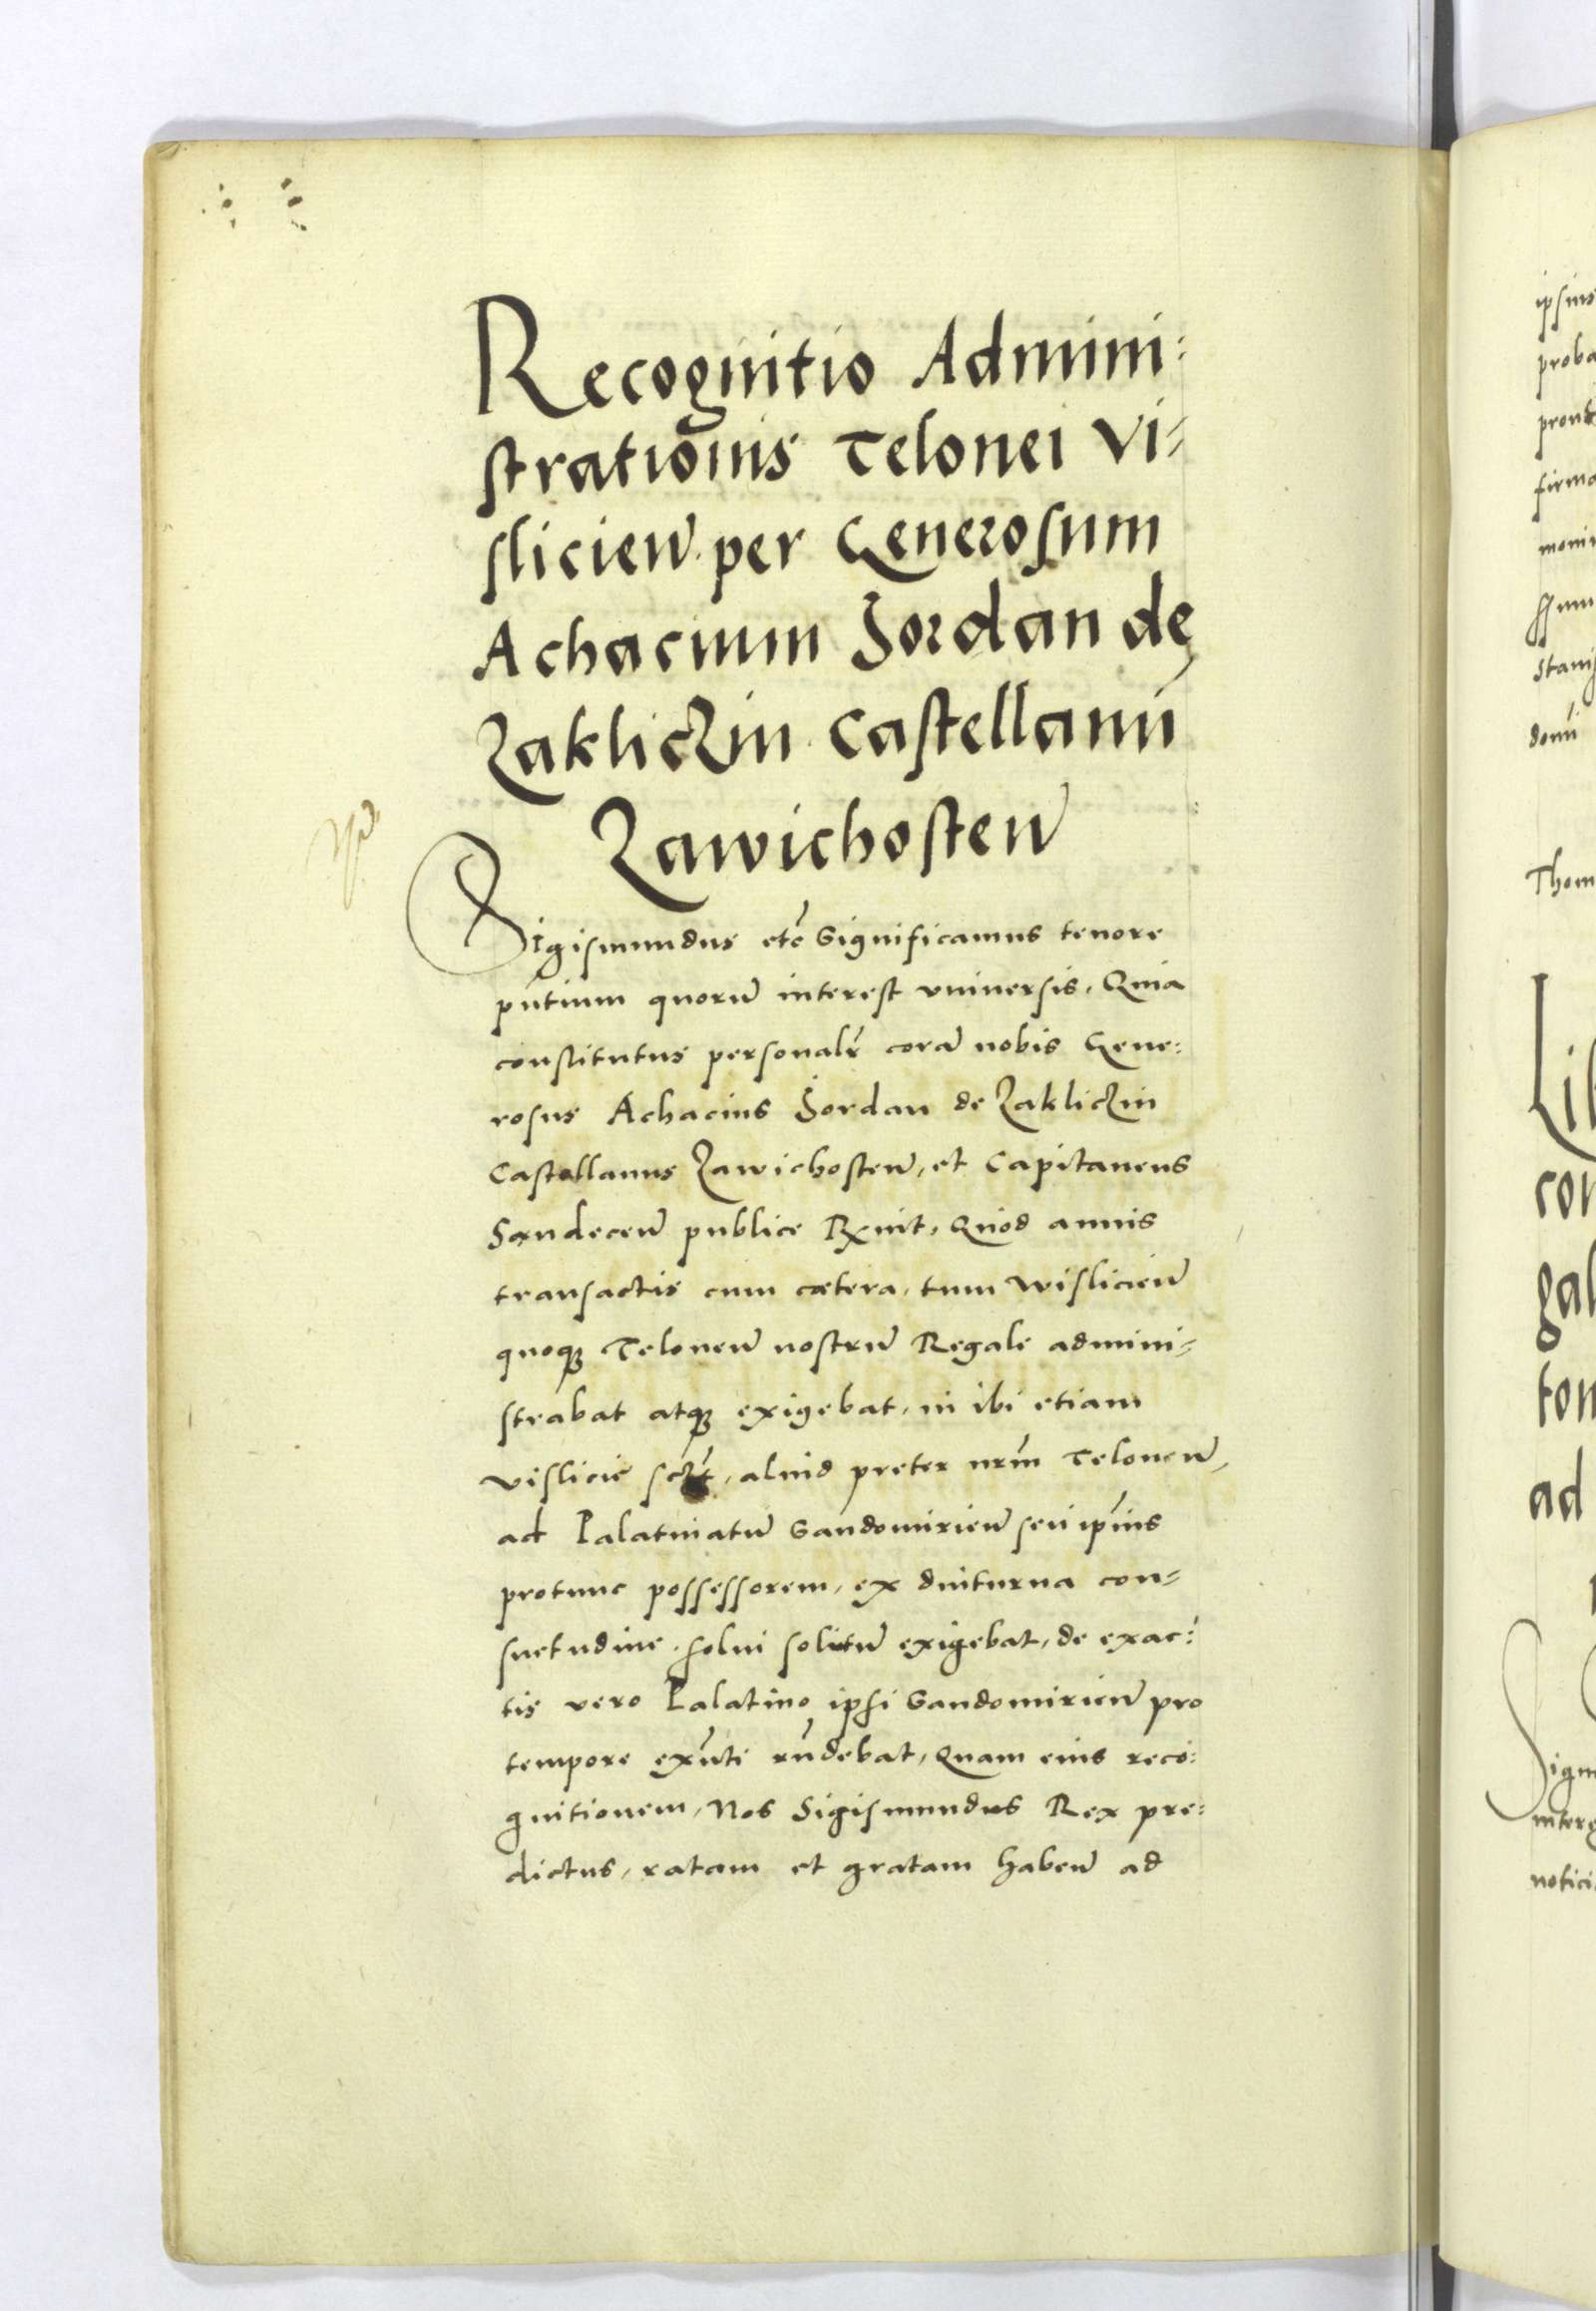 Recognitio Admini:
strationis Telonei Vi=
slicien̄. per Generosum
Achacium Jordan de
Zakliczin Castellanū
Zawichosten̄
Sigismundus etc̄ Significamus tenore
pn̄tium quorū interest vniuersis, Quia
constitutus personalr̄ corā nobis Gene:
rosus Achacius Jordan de Zakliczin
Castellanus Zawichosten̄, et Capitaneus
Sandecen̄ publice Rx̄uit, Quod annis
transactis cum cætera, tum Wislicien̄
quoq3 Teloneū nostrū Regale admini=
strabat atq3 exigebat, ni ibi etiam
Vislicie sct̄, aluid preter nr̄m Teloneū,
ad Palatinatū Sandomirien̄ seu ip̄ius
protunc possessorem, ex diuturna con=
suetudine, solui solitū exigebat, de exac:
tis vero Palatino ipsi Sandomirien̄ pro
tempore exn̄ti rn̄debat, Quam eius reco:
gnitionem, Nos Sigismundus Rex pre:
dictus, ratam et gratam haben̄ ad
ipsius
proba
prout
firma
Stani
domi
Thom
Lib
con
gal
ton
ad
Sigm
interq
notici